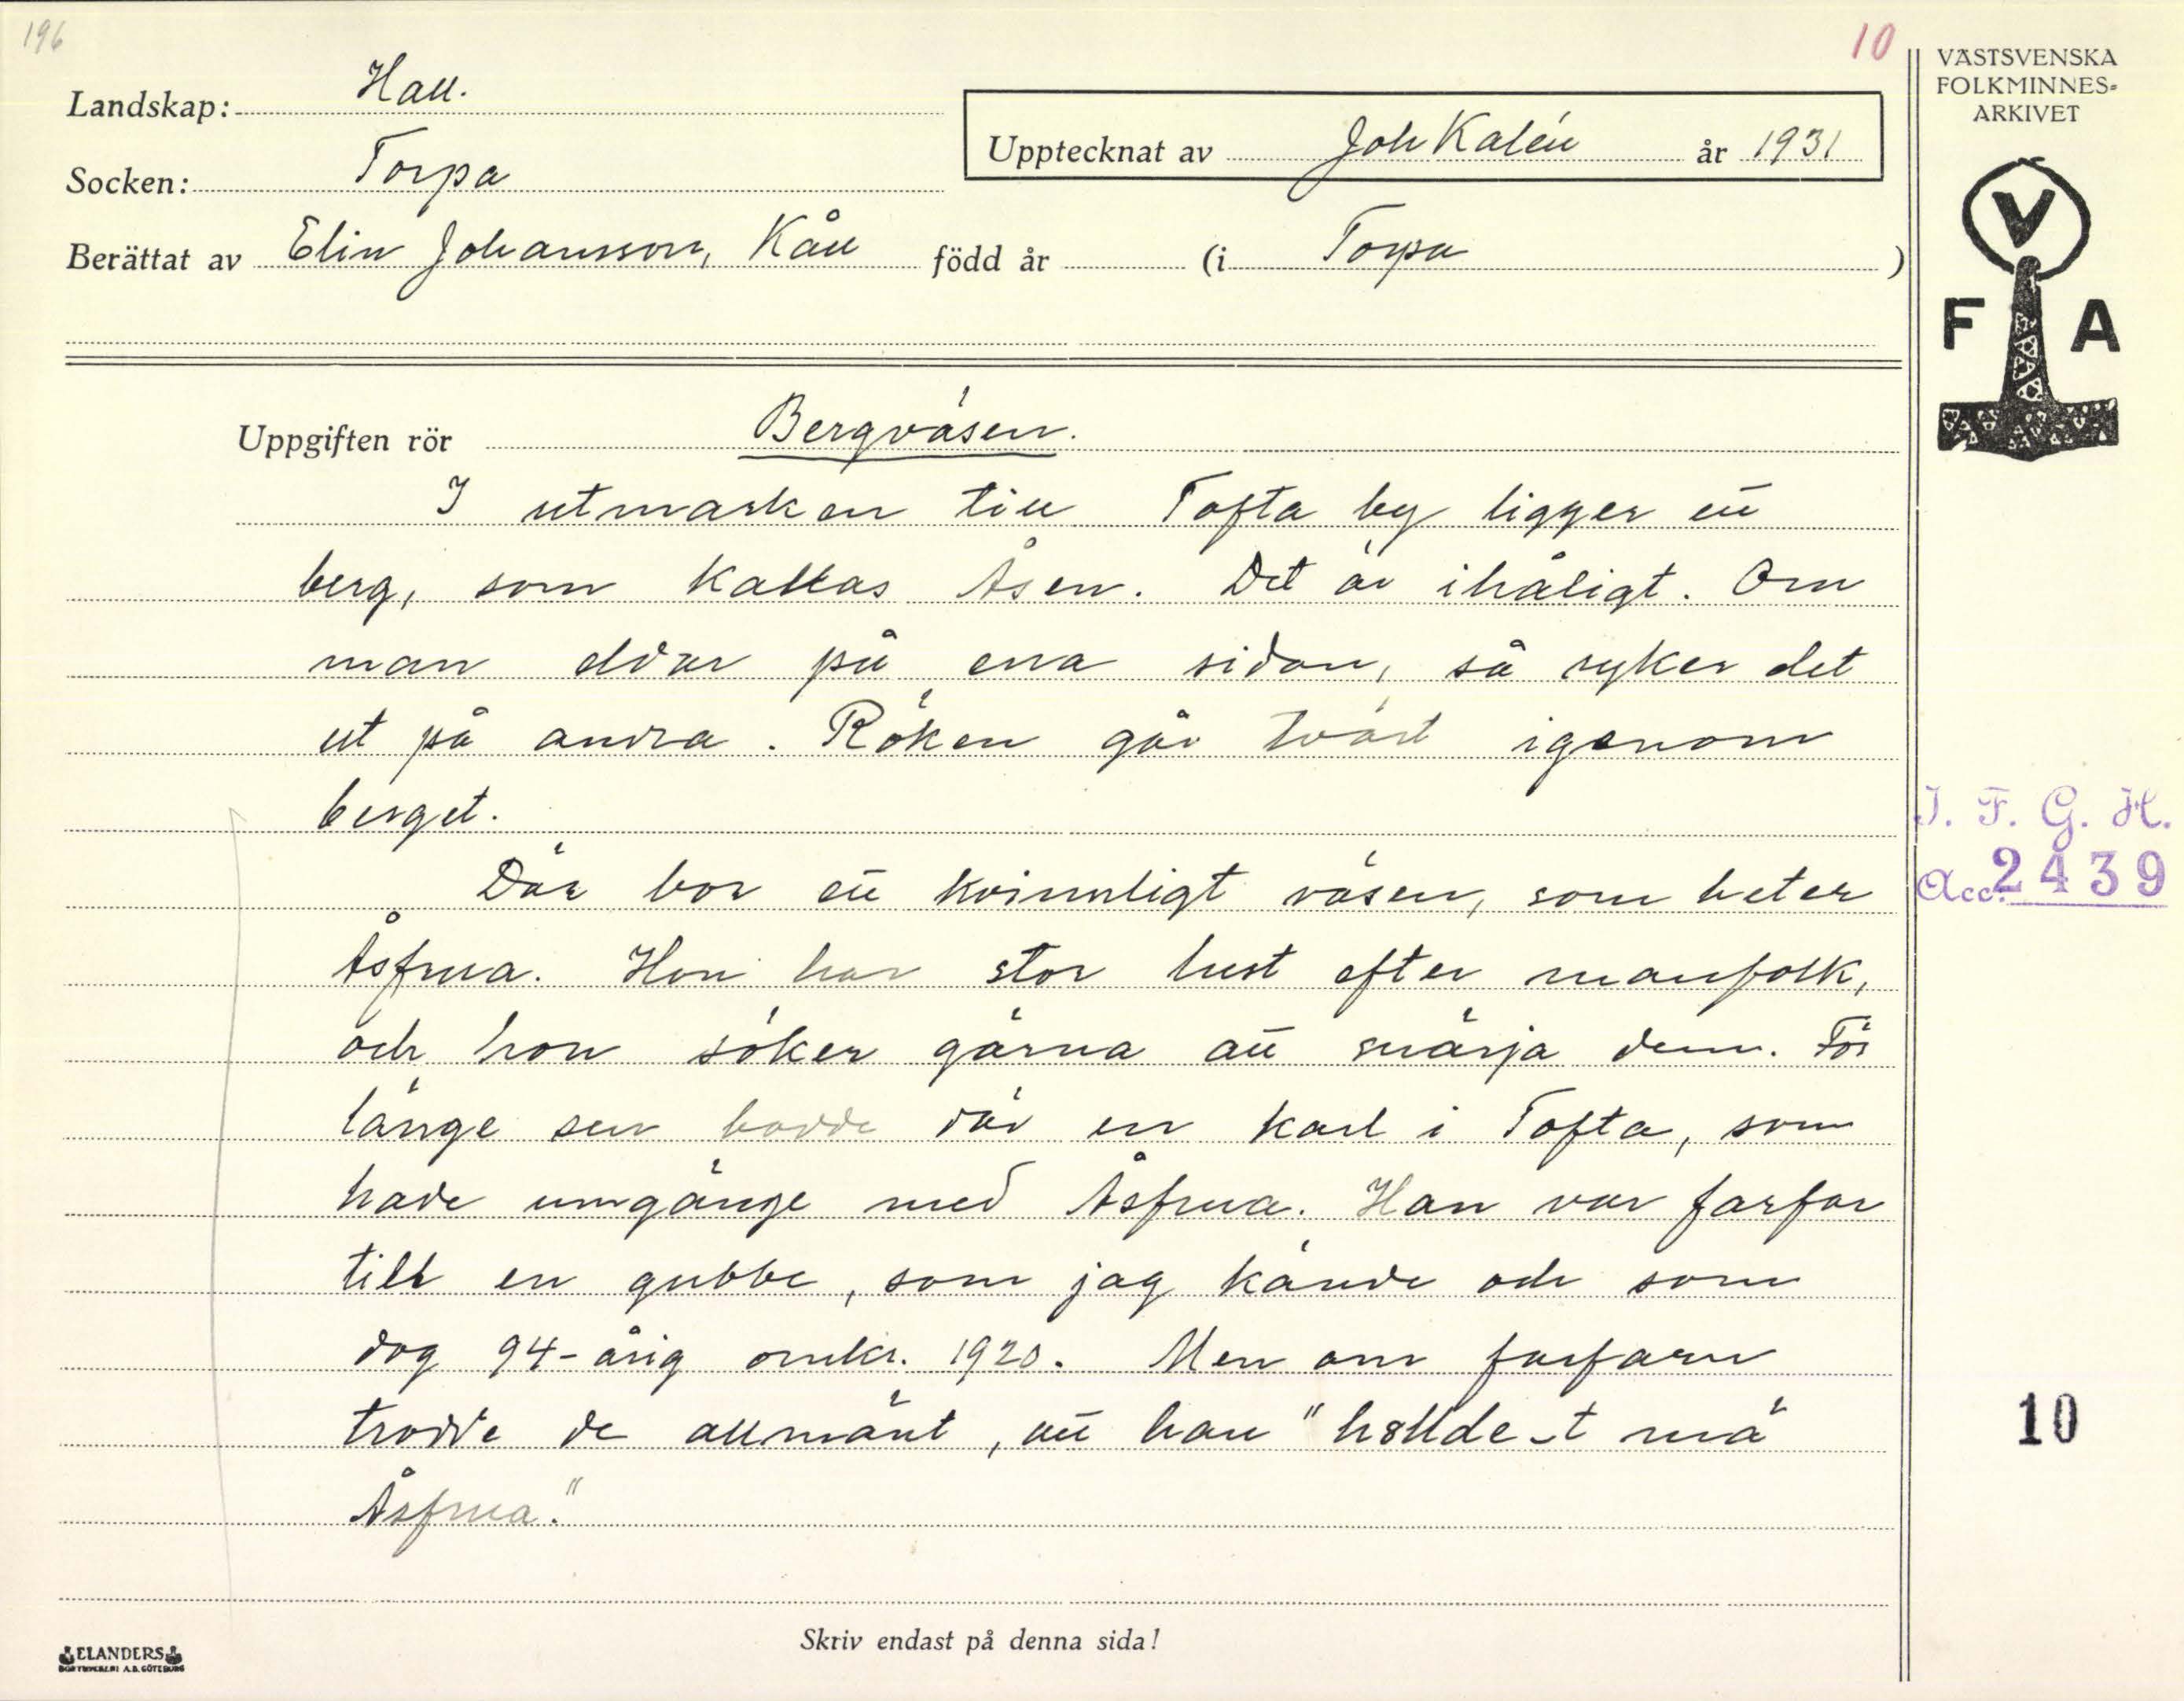 196
10
Landskap: Hall.
Socken: Torpa
Upptecknat av Joh Kalén år 1931
Berättat av Elin Johansson, Kåll född år (i Torpa )
VÄSTSVENSKA
FOLKMINNES-
ARKIVET
V
F A
Uppgiften rör Bergväsen.
I utmarken till Tofta by ligger ett
berg, som kallas Åsen. Det är ihåligt. Om
man eldar på ena sidan, så ryker det
ut på andra. Röken går tvärt igenom
berget.
Där bor ett kvinnligt väsen, som heter
Åsfrua. Hon har stor lust efter manfolk,
och hon söker gärna att snärja dem. För
länge sen bodde där en karl i Tofta, som
hade umgänge med Åsfrua. Han var farfar
till en gubbe, som jag kände och som
dog 94-årig omkr. 1920. Men om farfarn
trodde de allmänt, att han "hållde-t mä
Åsfrua."
I. F. G. H.
Acc. 2439
10
Skriv endast på denna sida!
ELANDERS
BOKTRYCKERI A.B. GÖTEBORG